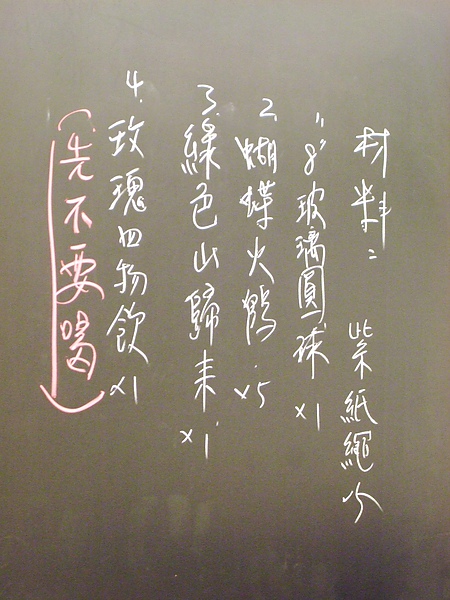 材料：
紫紙繩
1. 8"玻璃圓球 x1
2. 蝴蝶火鶴 x5
3. 綠色山歸来 x1
4. 玫瑰四物飲 x1
(先不要喝)